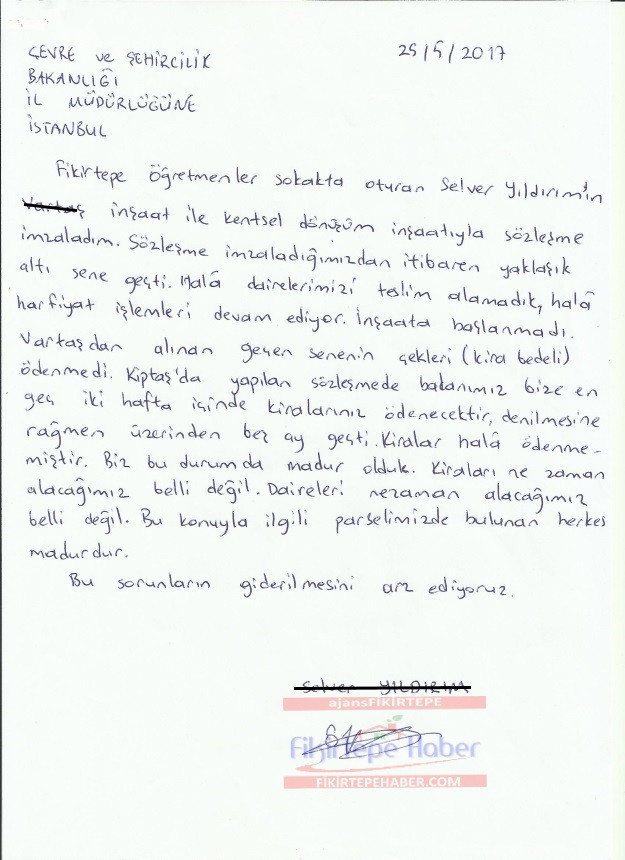 ÇEVRE ve ŞEHİRCİLİK
25/5/2017
BAKANLIĞI
İL MÜDÜRLÜĞÜNE
İSTANBUL
Fikirtepe Öğretmenler sokakta oturan Selver Yıldırım'ın
inşaat ile kentsel dönüşüm inşaatıyla sözleşme
imzaladım. Sözleşme imzaladığımızdan itibaren yaklaşık
altı sene geçti. Halâ dairelerimizi teslim alamadık, halâ
harfiyat işlemleri devam ediyor. İnşaata başlanmadı.
Vartaşdan alınan geçen senenin çekleri (kira bedeli)
ödenmedi. Kiptaş'da yapılan sözleşmede bakanımız bize en
geç iki hafta içinde kiralarınız ödenecektir, denilmesine
rağmen üzerinden beş ay geçti. Kiralar halâ ödenme-
miştir. Biz bu durumda madur olduk. Kiraları ne zaman
alacağımız belli değil. Daireleri nezaman alacağımız
belli değil. Bu konuyla ilgili parselimizde bulunan herkes
madurdur.
Bu sorunların giderilmesini arz ediyoruz.
Selver YILDIRIM
ajansFIKIRTEPE
Fikirtepe Haber
FİKİRTEPEHABER.COM